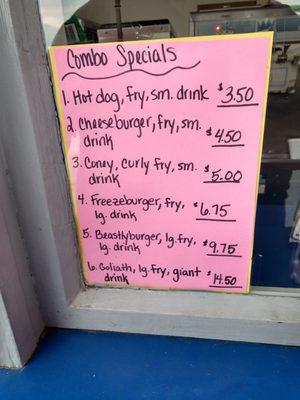 Combo Specials
1. Hot dog, fry, sm. drink $3.50
2. Cheeseburger, fry, sm.
drink $4.50
3. Coney, Curly fry, sm.
drink $5.00
4. Freezeburger, fry,
lg. drink $6.75
5. Beastlyburger, lg. fry,
lg. drink $9.75
6. Goliath, lg. fry, giant
drink $14.50